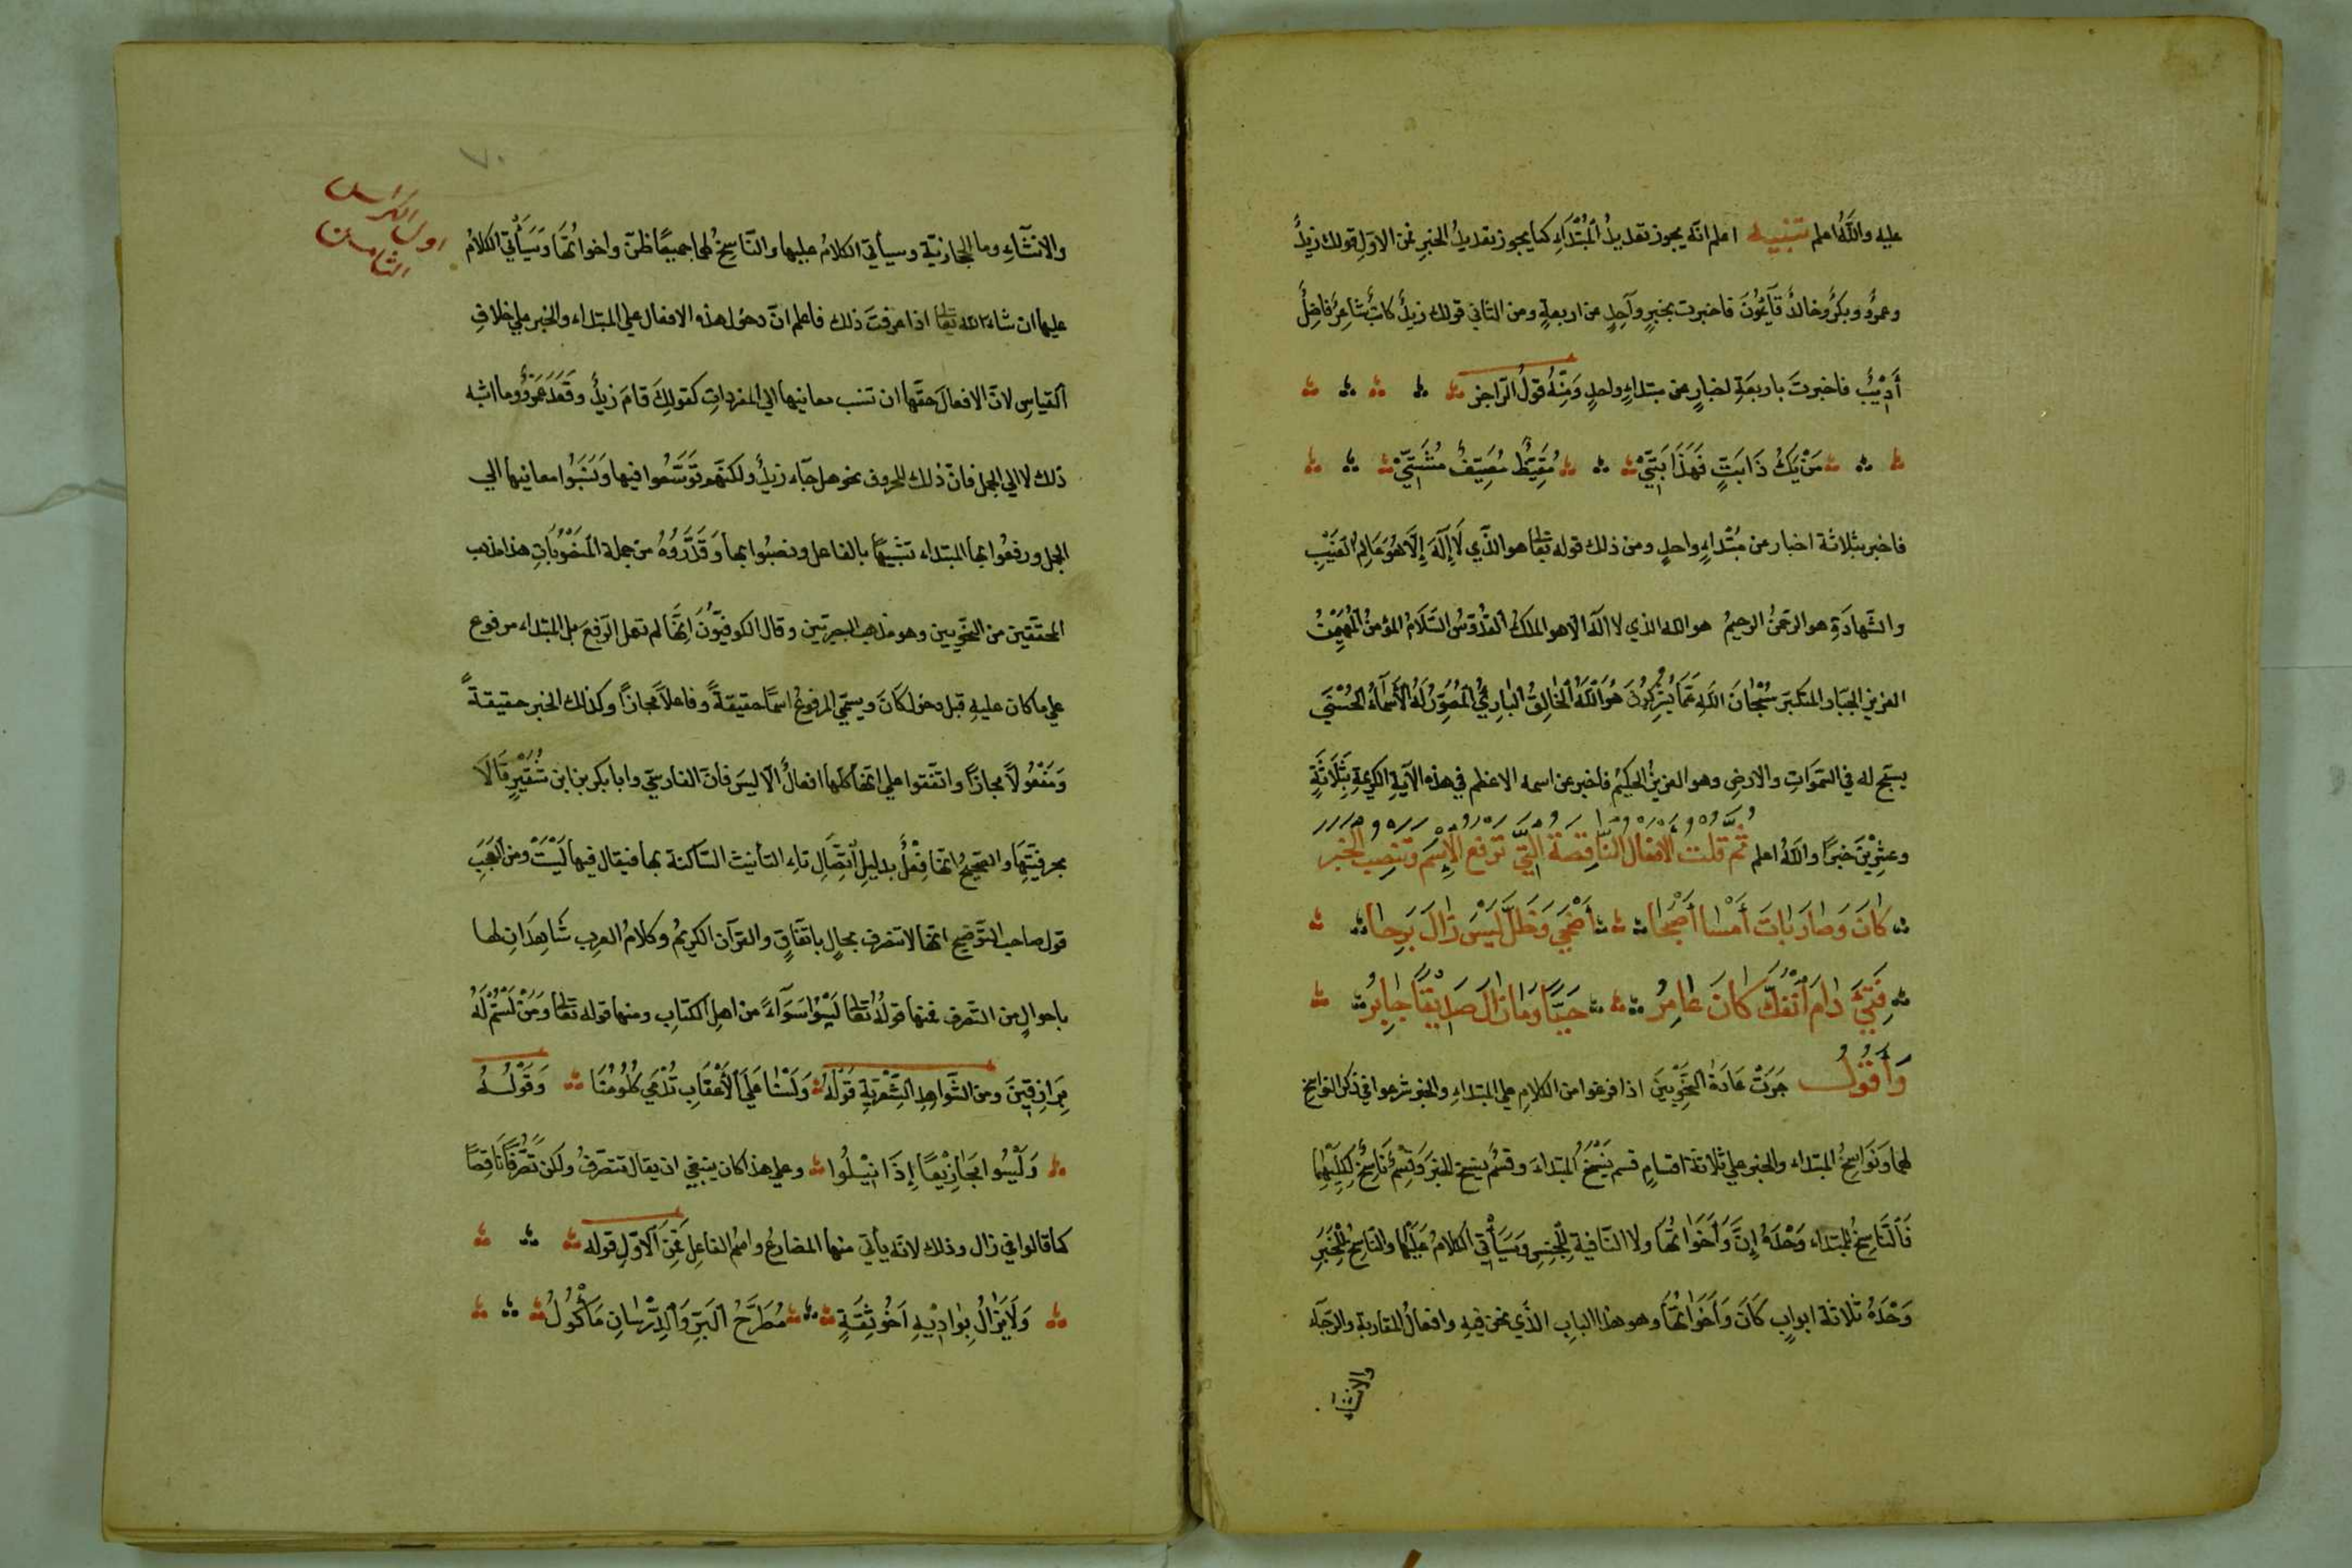 عليه والله اعلم تنبيه اعلم انه يجوز تعديد المُبْتَدَاءِ كما يجوز تعديدُ الخبرِ فمن الاوّلِ قولك زيدٌ
وعمرٌو وبكرٌ وخالدٌ قآئمُونَ فاخبرت بخبرٍ وآحِدٍ عن اربعةٍ ومن الثاني قولك زيدٌ كاتبٌ شاعرٌ فاضِلٌ
أَدِيْبٌ فاخبرتَ باربعَةِ اخبارٍ عن مبتداءٍ واحدٍ وَمِنْهُ قولُ الرّاجز
مَنْ يَكُ ذَا بَتٍّ فَهَذَا بَتِّيْ مُقَيِّظٌ مُصَيِّفٌ مُشَتِّيْ
فاخبر بثلاثة اخبار عن مبْتداءٍ واحدٍ ومن ذلك قوله تعالى هو الذّي لَا إِلَهَ إِلَّا هُوَ عَالِمُ الغَيْبِ
والشّهادَةِ هو الرحمنُ الرحيمُ هو الله الذي لا اله الا هو الملكُ القدُّوسُ السَّلَامُ المؤمنُ الْمُهَيْمِنُ
العزيز الجبّار المتكبّر سُبْحَانَ اللهِ عَمَّا يُشْرِكُونَ هُوَ اللَّهُ الْخَالِقُ الْبَارِئُ الْمُصَوِّرُ لَهُ الْأَسْمَآءُ الْحُسْنَى
يسبّح له في السّموَاتِ والارضِ وهو العزيزُ الحكيمُ فاخبر عن اسمه الاعظم في هذه الآيةِ الكريمةِ بِثَلَاثَةٍ
وعشرِيْنَ خبرًا واللهُ اعلم ثمّ قلت الافعال النّاقِصَة الّتي ترفع الاِسْمَ وتنصِب الخبر
كانَ وَصارَ باتَ أَمْسا أَصْبَحا أَضْحَى وَظَلَّ لَيْسَ زالَ بَرِحا
فَتِئَ دامَ انْفَكّ كَانَ عامِرُ حَيًّا وَمَا زالَ صَدِيْقًا جابِرُ
وَأَقُولُ جَرَتْ عَادَةُ النَّحْوِيّينَ اذا فرغوا من الكلامِ على المبتداءِ والخبر شرعوا في ذكر النواسخ
لهما وَنَوَاسِخُ المبتداء والخبر على ثلاثة اقسامٍ قسم يَنْسَخُ المبتداءَ وقسمٌ ينسخ الخبرَ وَقِسْمٌ نَاسِخٌ لِكِلَيْهِمَا
فَالنَّاسِخُ للمبتداء وَحْدَهُ إِنَّ وَأَخَوَاتُهَا ولا النّافيةِ لِلْجِنسِ وَسَيَأْتِي الكلَامُ عَلَيْهَا والنّاسِخُ لِلْخَبَرِ
وَحْدَهُ ثلاثة ابوابٍ كَانَ وَأَخَوَاتُهَا وهو هذا البابِ الذّي نحن فيهِ وافعالُ المقاربةِ والرّجآءِ
والانشاء
٧٠
اول الكراس
الثامن
والانشآءِ وما الحجازيّة وسيأتي الكلامُ عليها والنّاسِخُ لهما جميعًا ظنّ واخواتُهَا وَسَيَأْتِي الكلامُ
عليها ان شاء الله تعالى اذا عرفتَ ذلك فاعلم انّ دخول هذه الافعال على المبتداء والخبر على خلافِ
القياسِ لانّ الافعالَ حقّها ان تنسب معانيها الى المفرداتِ كقولِكَ قامَ زيدٌ وقَعَدَ عَمْرٌو وما اشبه
ذلك لا الى الجمل فانّ ذلك للحروف نحو هل جآء زيدٌ ولكنّهم توَسَّعُوا فيها وَنَسَبُوا معانيها الى
الجمل ورفعُوا بها المبتداء تشبيهًا بالفاعل ونصبُوا بها وَقَدَّرُوهُ من جملة المَنصُوبَاتِ هذا مذهب
المحقّقين من النحْويين وهو مذهب البصريّين وقال الكوفيّونَ إنّها لم تعمل الرّفعَ بل المبتداء مرفوع
على ما كان عليهِ قبل دخول كَانَ ويسمّي المرفوعُ اسمًا حقيقةً وفاعلًا مجازًا وكذلك الخبر حقيقةً
وَمَفْعُولًا مجازًا واتّفقوا على انّها كلّها افعالٌ الّا ليسَ فانّ الفارسيّ وابا بكر بن ابن شُقَيْرٍ قَالَا
بحرفيّتِهَا والصّحيحُ انّها فِعْلٌ بدليلِ اتِّصَالِ تاءِ التأنيث السّاكنة بها فيقال فيها لَيْسَتْ ومن الْعَجَبِ
قول صاحب التّوضيح انّها لا تتصرف بحالٍ باتّفَاقٍ والقرآن الكريمُ وكلامُ العربِ شَاهِدَانِ لها
باحوالٍ من التّصرف فمنها قولُهُ تعالى لَيْسُوا سَوَآءً من اهل الكتابِ ومنها قوله تعالى وَمَنْ لَسْتُمْ لَهُ
بِرَازِقِينَ ومن الشّواهِدِ الشِّعْرِيّةِ قَوْلُهُ وَلَسْنَا عَلَى الْأَعْقَابِ تُدْمَي كُلُومُنَا وَقَوْلُهُ
وَلَيْسُوا مَجَازِيْعًا إِذَا نِيْلُوا وعلى هذا كان ينبغي ان يقال تتصّرفُ ولكن تَصَرُّفًا نَاقِصًا
كما قالوا في زال وذلك لانّه يأتي منها المضارعُ واسمُ الفاعلِ فمِنَ الاوّلِ قوله
وَلَا يَزَالُ بِوَادِيْهِ اَخُو ثِقَةٍ مُطَرَّحُ البَزِّ وَالدِّرْسَانِ مَأْكُولُ